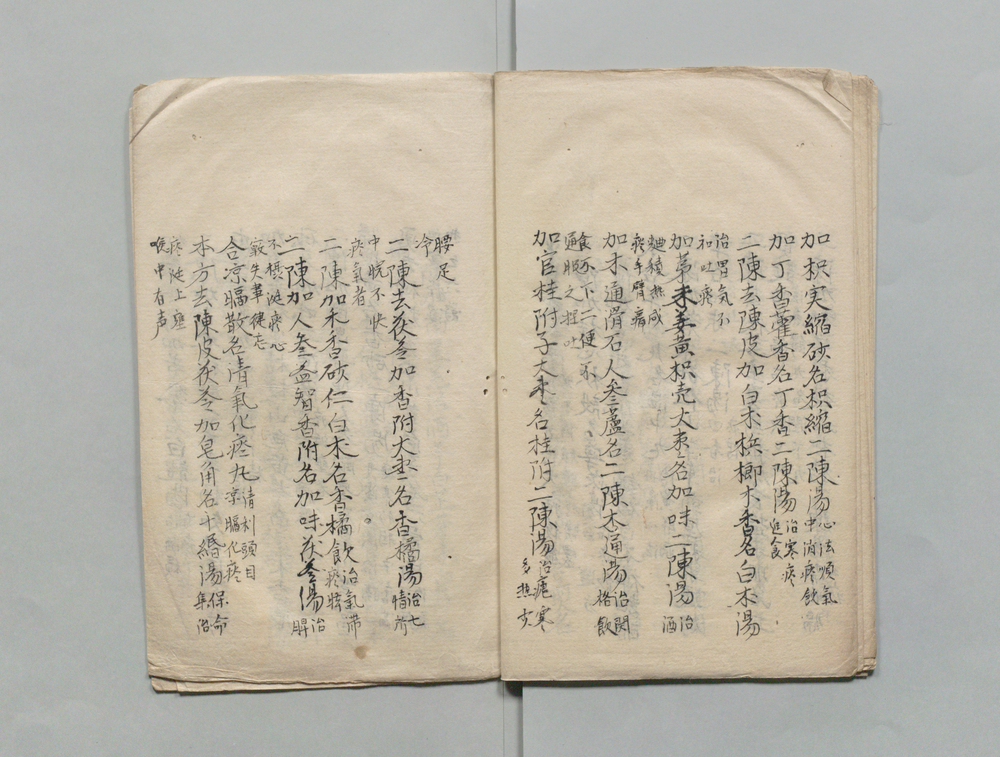 加枳実縮砂名枳縮二陳湯心法順氣
中消痰飲
加丁香藿香名丁香二陳湯治寒痰
進食
二陳去陳皮加白朮梹榔木香名白朮湯
治胃氣不
和吐痰
加蒼朮姜黄枳壳大枣名加味二陳湯治酒
麺積热成
痰手臂痛
加木通滑石人参蘆名二陳木通湯治関格飲
食不下二便不
通服之探吐
加官桂附子大枣名桂附二陳湯治瘧寒
多热少
腰足
冷
二陳去茯苓加香附大枣名香橘湯治七
情所
中脘不快
痰氣者
二陳加木香砂仁白朮名香橘飲治氣滞
痰特
二陳加人参益智香附名加味茯苓湯治
脾
不模涎痰心
竅失事健忘
合凉膈散名清氣化痰丸清利頭目
凉膈化痰
本方去陳皮茯苓加皂角名半緡湯保命
集治
痰涎上壅
喉中有声